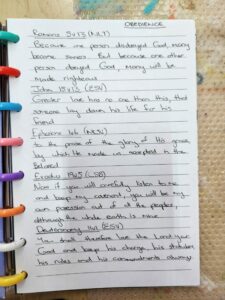 OBEDIENCE
Romans 5v19 (NLT)
Because one person disobeyed God, many
become sinners. But because one other
person obeyed God, many will be
made righteous
John 15v13 (ESV)
Greater love has no one than this, that
someone lay down his life for his
friend
Ephesians 1v6 (NKJV)
to the praise of the glory of His grace
by which He made us accepted in the
Beloved
Exodus 19v5 (LSB)
Now if you will carefully listen to me
and keep my covenant, you will be my
own possession out of all the peoples,
although the whole earth is mine
Deuteronomy 11v1 (ESV)
You shall therefore love the Lord your
God and keep his charge, his statutes,
his rules and his commandments always